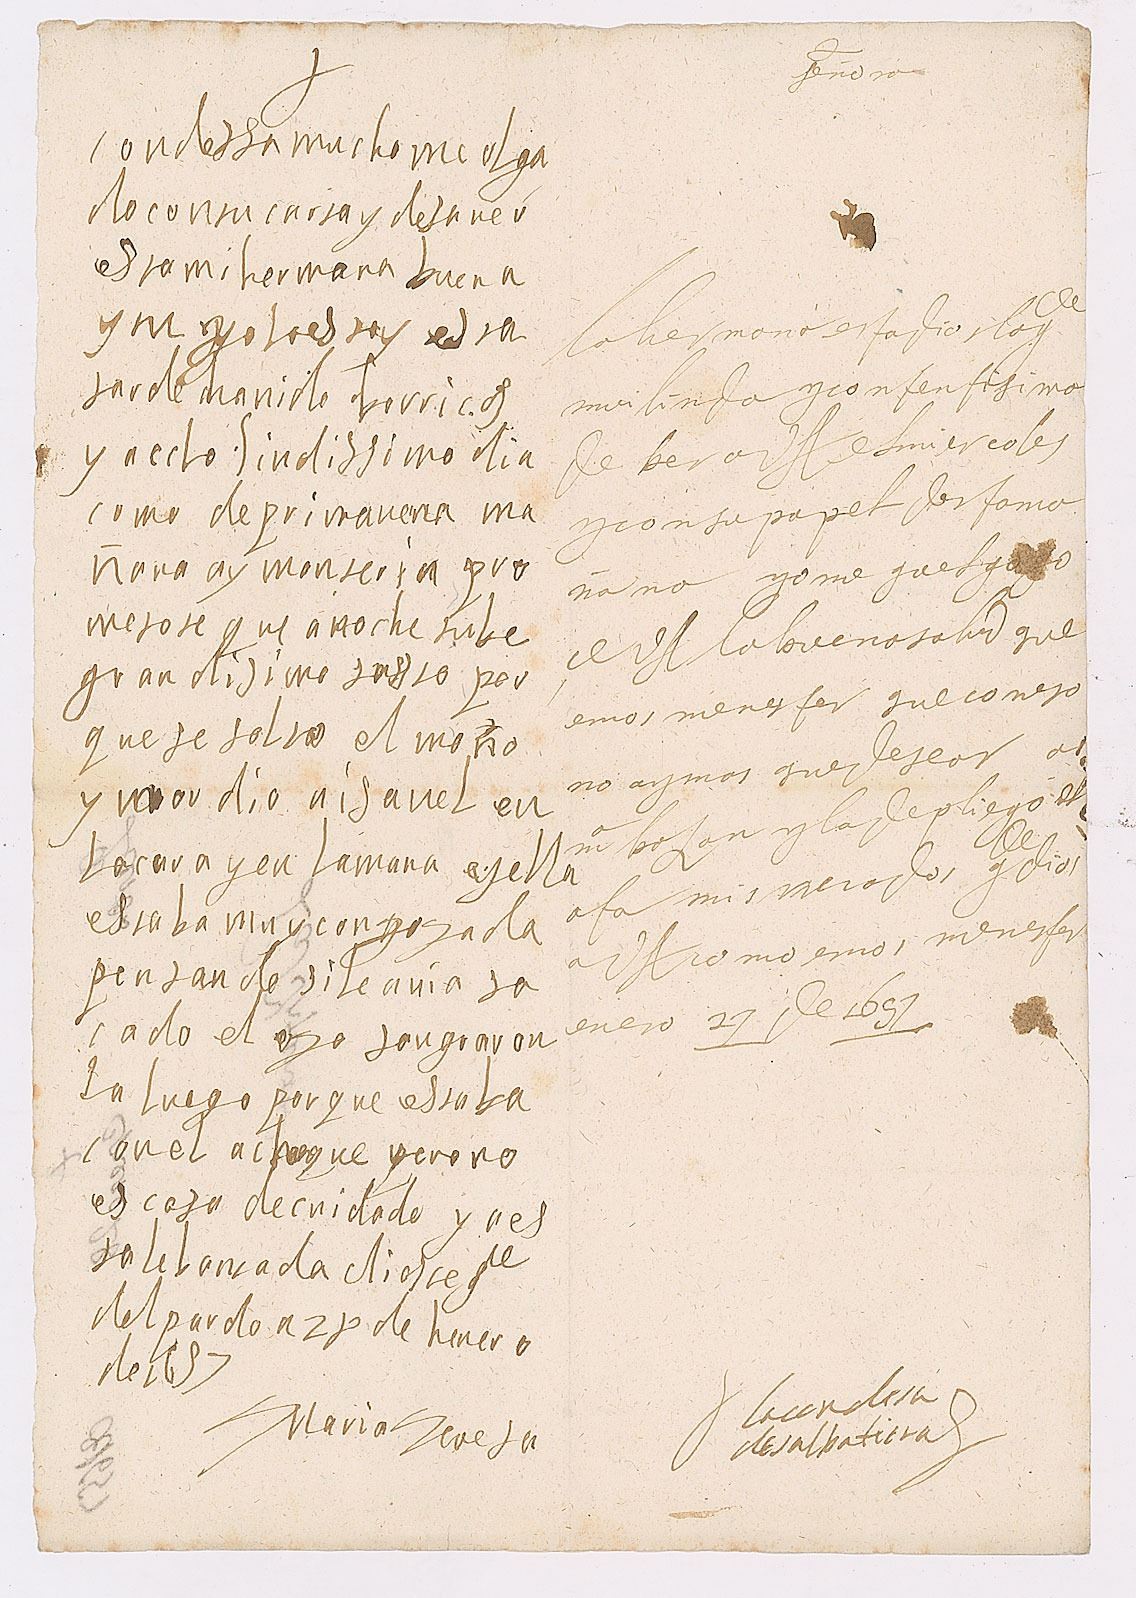 condessa mucho me olga
do con su carta y de saver
esta mi hermana buena
y yo lo estoy esta
tarde an ido a borricos
y aecho lindissimo dia
como de primavera ma
ñana ay monteria pro
metote que anoche tube
grandisimo susto por
que se solto el mono
y mordio a isavel en
la cara y en la mana y ella
estaba muy congojada
pensando si le avia sa
cado el ojo sangraron
la luego porque estaba
con el achaque pero no
es cosa de cuidado y aes
ta lebantada dios te gde
del pardo a 28 de henero
de 1657
Maria Teresa
Señora
la hermana esta a dios gde
mui linda y contentisima
de ber a VM el miercoles
y con su papel desta ma
ñana yo me guelgo
de VM la buena salud que
emos menester que con eso
no ay mas que desear
bazan y la de pliego
gde dios
a VM como emos menester
enero 27 de 1657
la condesa
de salbatierra